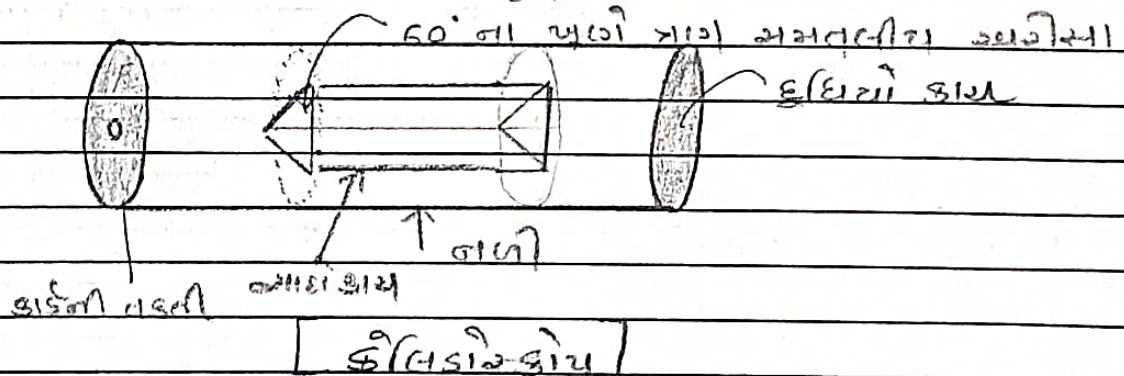 60° ના ખુણે ત્રણ સમતલીય અરીસા
દુધિયો કાચ
નળી
સાદો કાચ
કાર્ડની તકતી
કેલિડોસ્કોપ